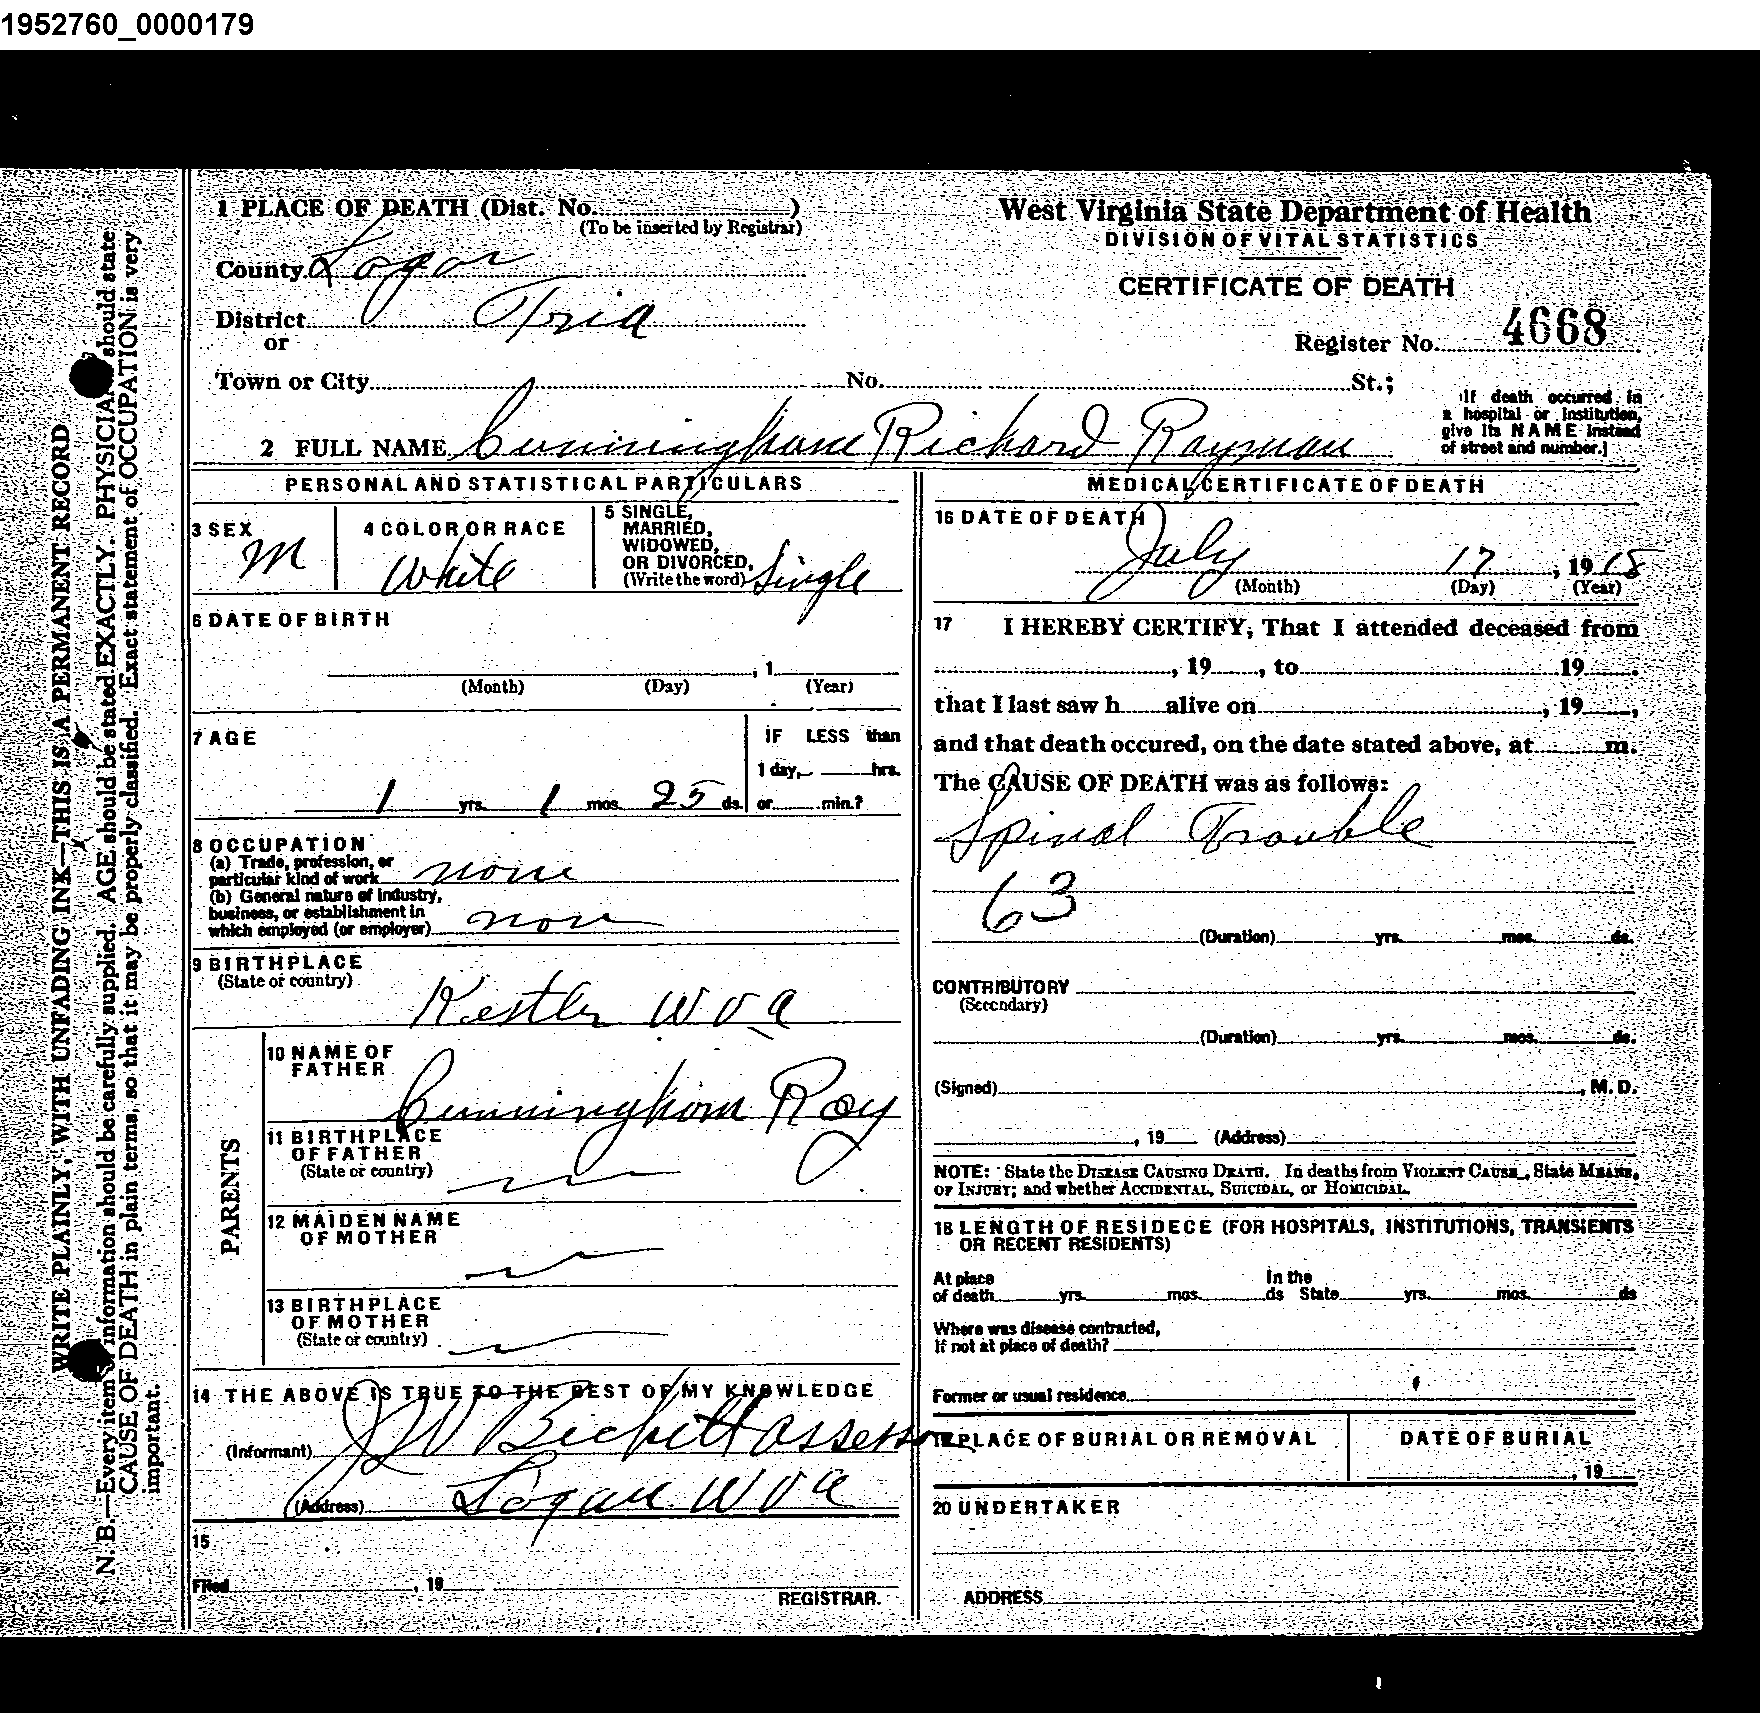 1952760_0000179
1 PLACE OF DEATH (Dist. No. )
(To be inserted by Registrar)
County Logan
District Tria
or
Town or City No. St.;
West Virginia State Department of Health
DIVISION OF VITAL STATISTICS
CERTIFICATE OF DEATH
Register No. 4668
If death occurred in
a hospital or institution,
give its NAME instead
of street and number.]
2 FULL NAME Cunningham Richard Rayman
PERSONAL AND STATISTICAL PARTICULARS
3 SEX
M
4 COLOR OR RACE
White
5 SINGLE,
MARRIED,
WIDOWED,
OR DIVORCED,
(Write the word) Single
6 DATE OF BIRTH
, 1
(Month) (Day) (Year)
7 AGE
1 yrs. 1 mos. 25 ds.
IF LESS than
1 day, hrs.
or min.?
8 OCCUPATION
(a) Trade, profession, or
particular kind of work none
(b) General nature of industry,
business, or establishment in
which employed (or employer) non
9 BIRTHPLACE
(State or country)
Kestler W Va
PARENTS
10 NAME OF
FATHER
Cunningham Roy
11 BIRTHPLACE
OF FATHER
(State or country)
12 MAIDEN NAME
OF MOTHER
13 BIRTHPLACE
OF MOTHER
(State or country)
14 THE ABOVE IS TRUE TO THE BEST OF MY KNOWLEDGE
(Informant) J W Bickett assessor
(Address) Logan W Va
15
Filed , 19
REGISTRAR.
MEDICAL CERTIFICATE OF DEATH
16 DATE OF DEATH
July 17, 1918
(Month) (Day) (Year)
17 I HEREBY CERTIFY, That I attended deceased from
, 19 , to 19 .
that I last saw h alive on , 19 ,
and that death occured, on the date stated above, at m.
The CAUSE OF DEATH was as follows:
Spinal Trouble
63
(Duration) yrs. mos. ds.
CONTRIBUTORY
(Secondary)
(Duration) yrs. mos. ds.
(Signed) , M. D.
, 19 (Address)
NOTE: State the DISEASE CAUSING DEATH. In deaths from VIOLENT CAUSE, State MEANS,
OF INJURY; and whether ACCIDENTAL, SUICIDAL, or HOMICIDAL.
18 LENGTH OF RESIDECE (FOR HOSPITALS, INSTITUTIONS, TRANSIENTS
OR RECENT RESIDENTS)
At place In the
of death yrs. mos. ds State yrs. mos. ds
Where was disease contracted,
If not at place of death?
Former or usual residence
19 PLACE OF BURIAL OR REMOVAL
DATE OF BURIAL
, 19
20 UNDERTAKER
ADDRESS
WRITE PLAINLY, WITH UNFADING INK—THIS IS A PERMANENT RECORD
N. B.—Every item of information should be carefully supplied. AGE should be stated EXACTLY. PHYSICIANS should state
CAUSE OF DEATH in plain terms, so that it may be properly classified. Exact statement of OCCUPATION is very
important.